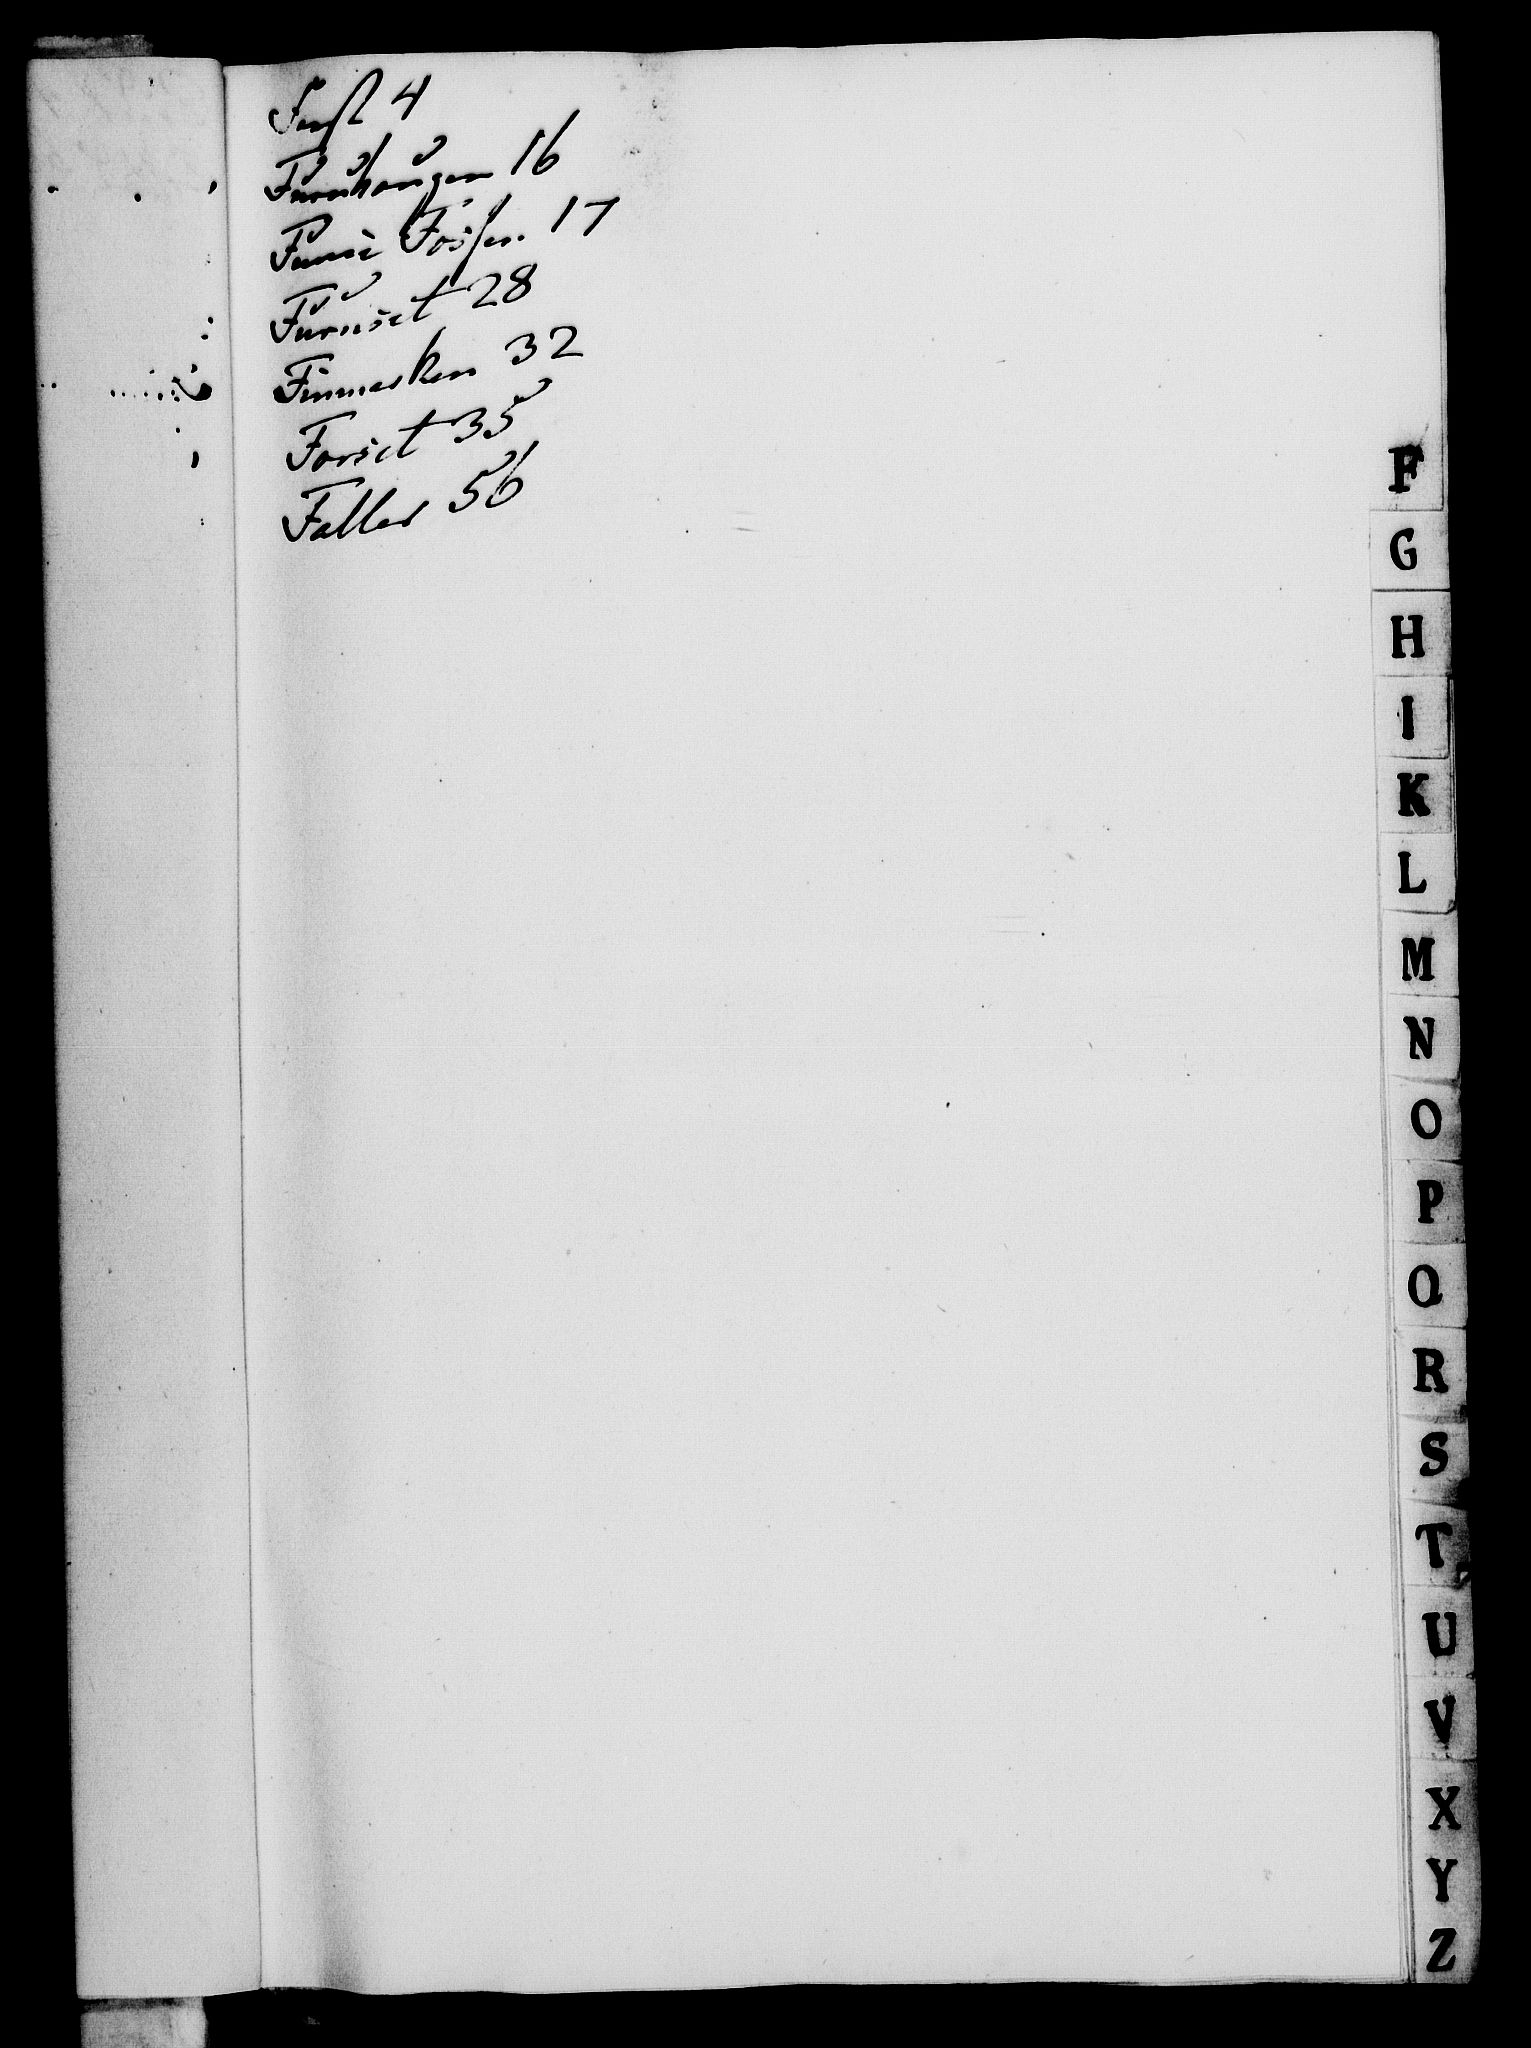 Furnhougen 16
Fosser 17
Furuset 28
Finmarken 32
Forset 35
Faller 56
F
G
H
I
K
L
M
N
O
P
Q
R
S
T
U
V
X
Y
Z